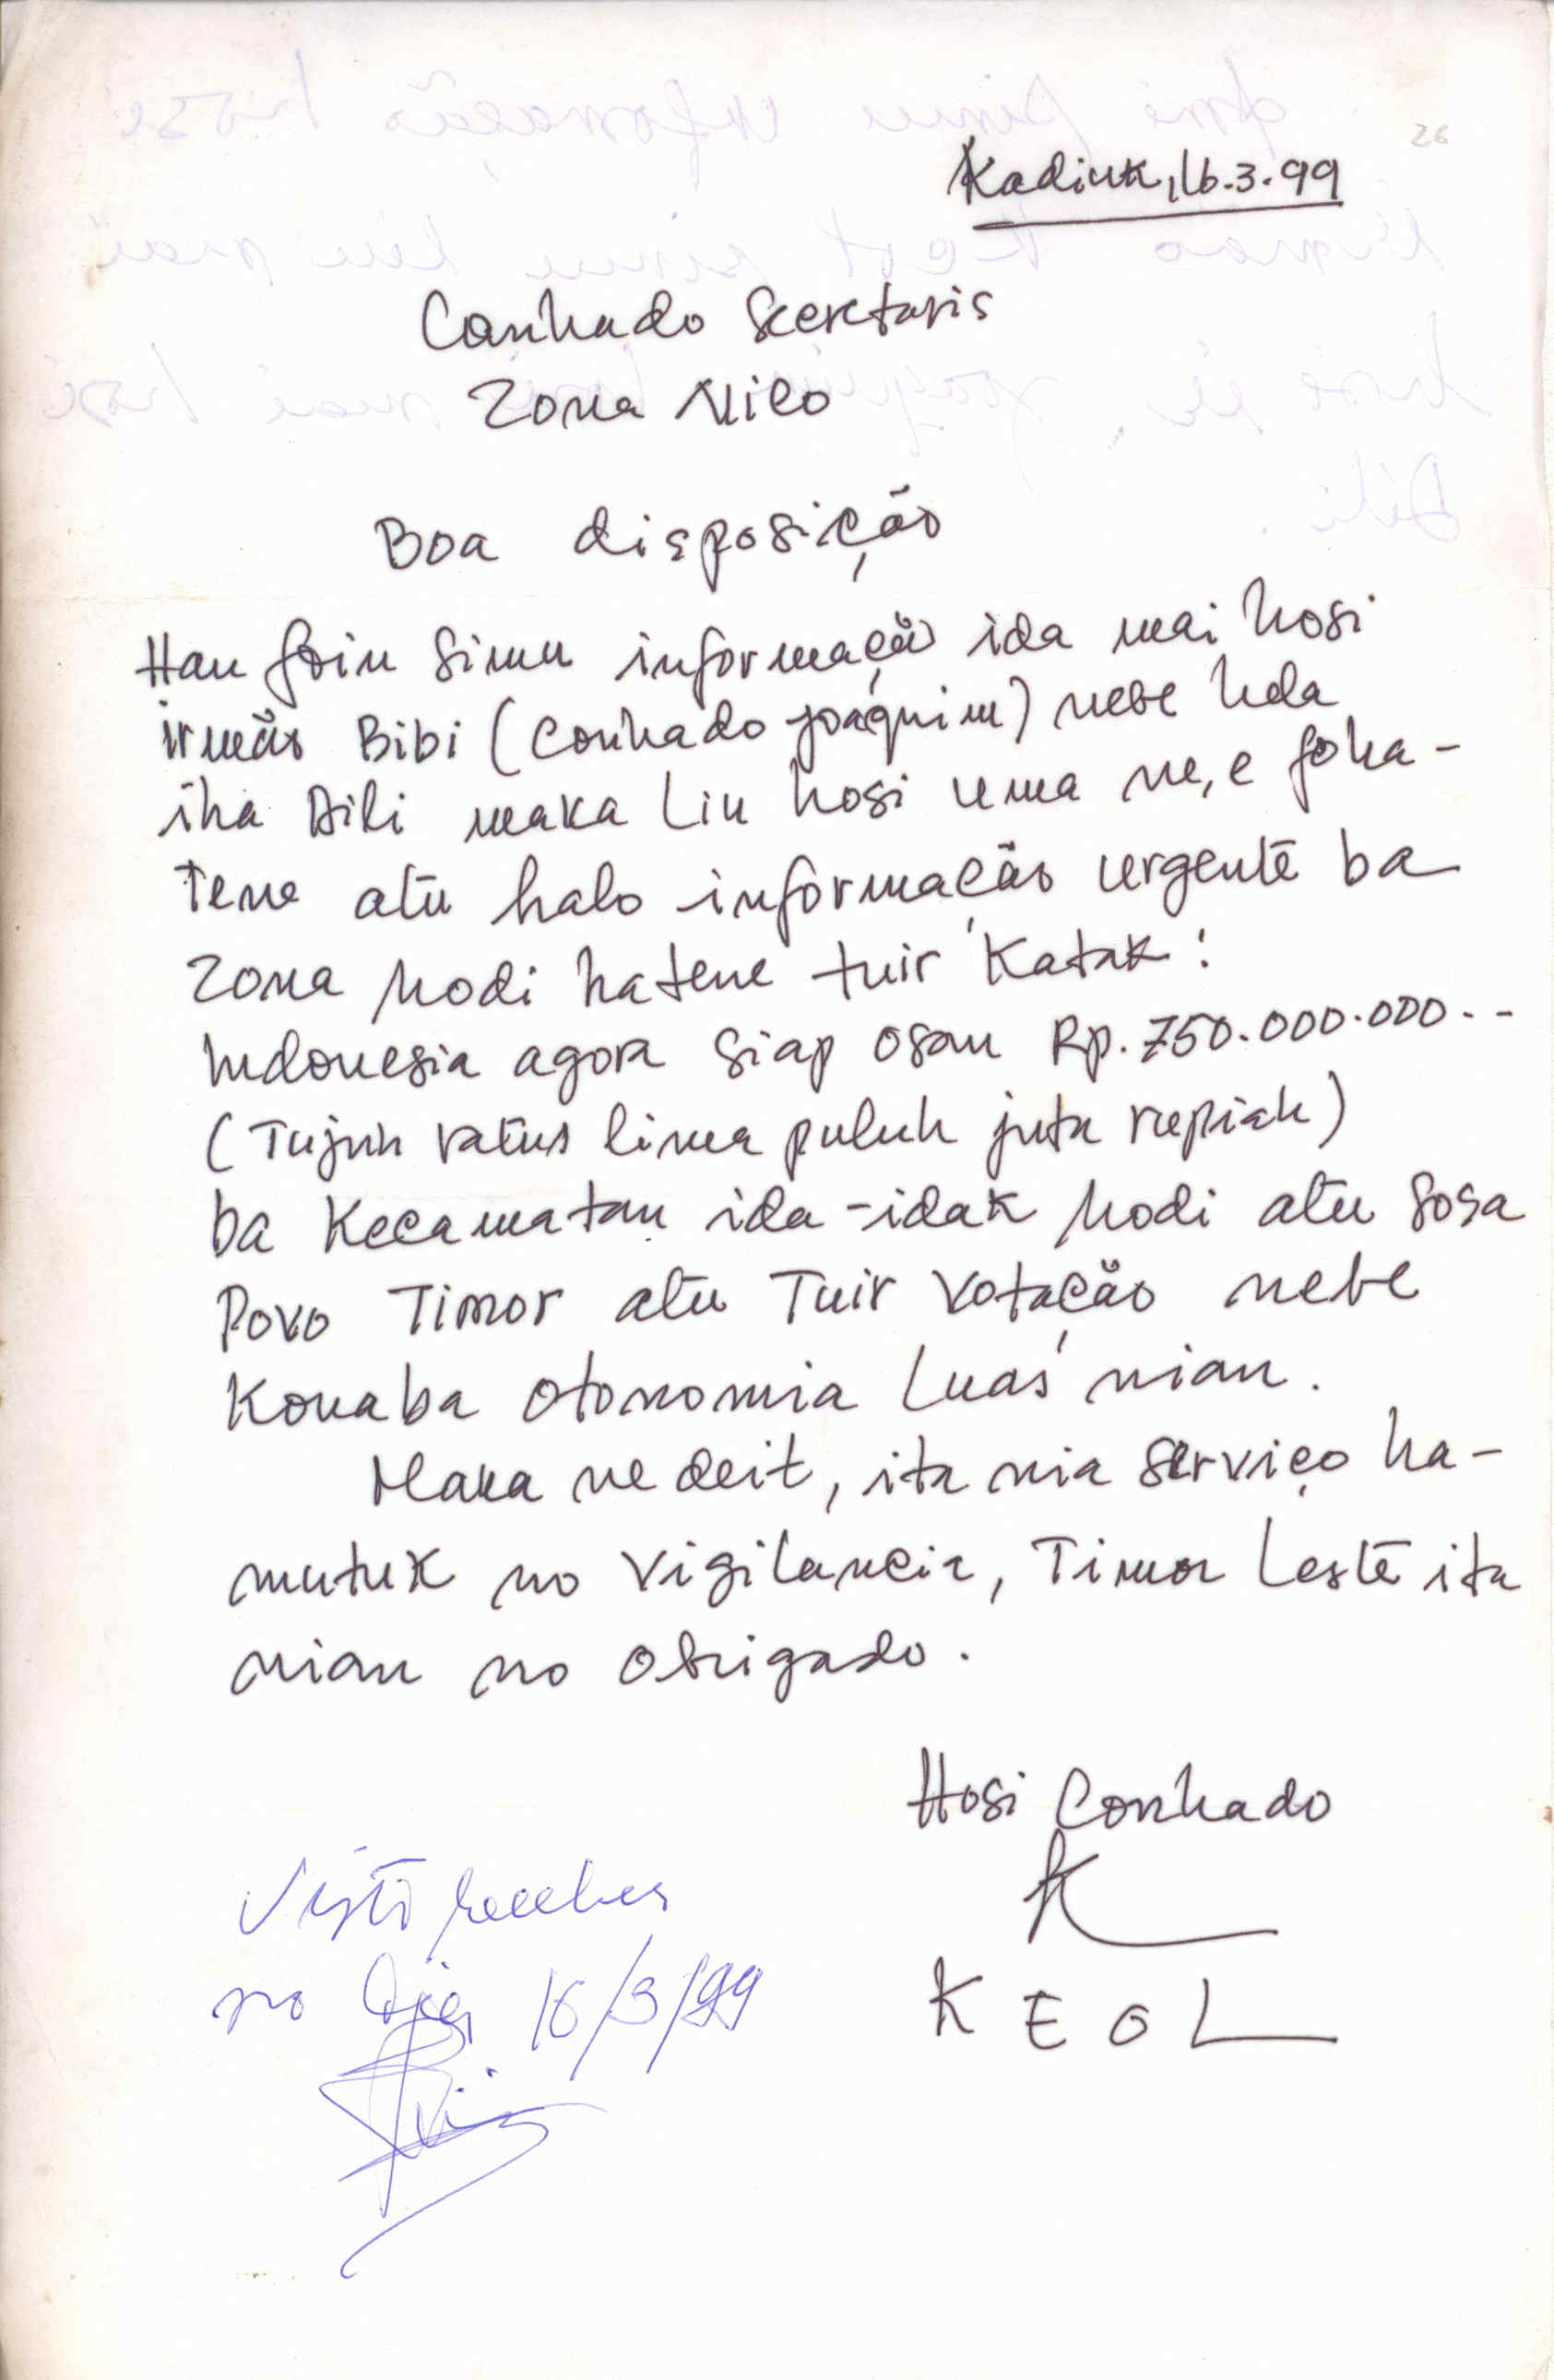 26
Kadiuk, 16.3.99
Conhado Secretaris
Zona Nilo
Boa disposição
Hau foin simu informação ida mai hosi
irmão Bibi (Conhado Joaquim) nebe hela
iha Dili maka liu hosi uma ne,e foha-
tene atu halo informação urgente ba
Zona hodi hatene tuir Katak:
Indonesia agora siap osan Rp. 750.000.000.--
(Tujuh ratus lima puluh juta rupiah)
ba Kecamatan ida-idak hodi atu sosa
Povo Timor atu Tuir Votação nebe
Konaba otonomia Luas nian.
Maka ne deit, ita nia serviço ha-
mutuk no vigilancia, Timor Leste ita
nian no obrigado.
Hosi Conhado
K
KEOL
Visto recebes
no dia 16/3/99